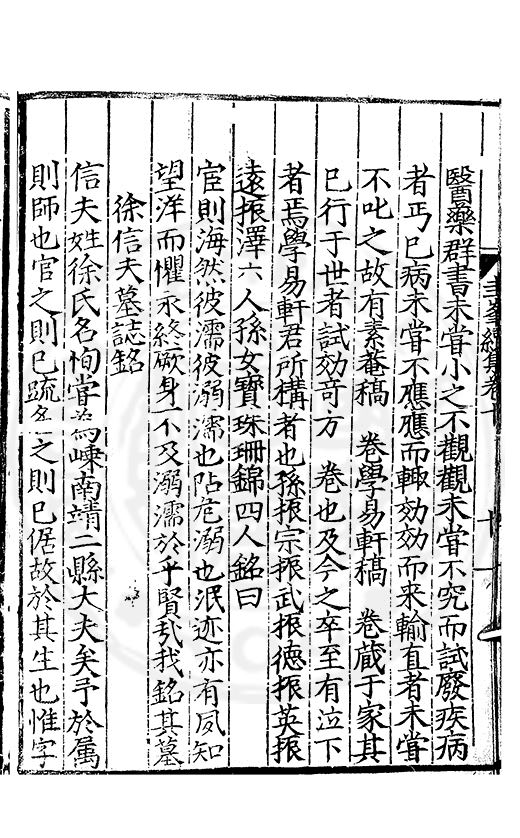 醫藥群書未嘗小之不觀觀未嘗不究而試廢疾病
者丐已病未嘗不應應而輙効効而来輸直者未嘗
不叱之故有素菴稿　卷學易軒稿　卷蔵于家其
已行于世者試効竒方　卷也及今之卒至有泣下
者焉學易軒君所構者也孫振宗振武振德振英振
遠振澤六人孫女寳珠珊錦四人銘曰
宦則海然彼濡彼溺濡也阽危溺也泯迹亦有夙知
望洋而懼永終厥身一不及溺濡於乎賢㢤我銘其墓
徐信夫墓誌銘
信夫姓徐氏名恂嘗為嵊南靖二縣大夫矣予於属
則師也官之則已疏名之則已倨故於其生也惟字
圭峯續集卷十